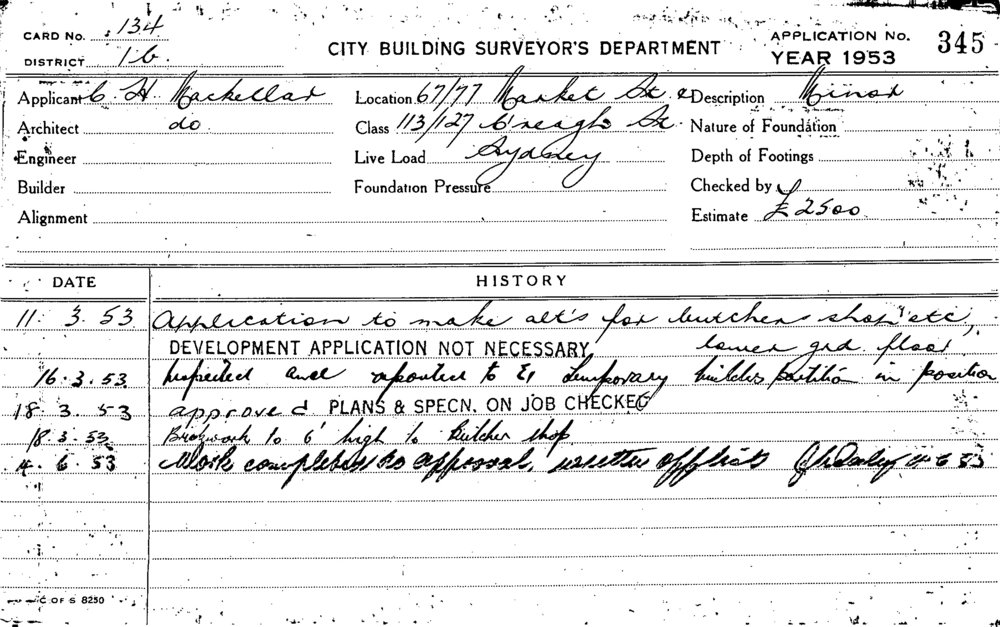 CARD No. 134
DISTRICT 16.
CITY BUILDING SURVEYOR'S DEPARTMENT
APPLICATION No. 345
YEAR 1953
Applicant C. H. Mackellar Location 67/77 Market St. & Description Minor
Architect do Class 113/127 C'reagh St. Nature of Foundation
Engineer Live Load Sydney Depth of Footings
Builder Foundation Pressure Checked by
Alignment Estimate £2500
DATE HISTORY
11. 3. 53 Application to make alt's for butchers shop etc,
DEVELOPMENT APPLICATION NOT NECESSARY lower grd. floor
16. 3. 53 Inspected and reported to temporary builders partition in position
18. 3. 53 approved PLANS & SPECN. ON JOB CHECKED
18. 3. 53 Brickwork to 6' high to Butcher shop
4. 6. 53 Work completed to approval, 53
C OF S 8250